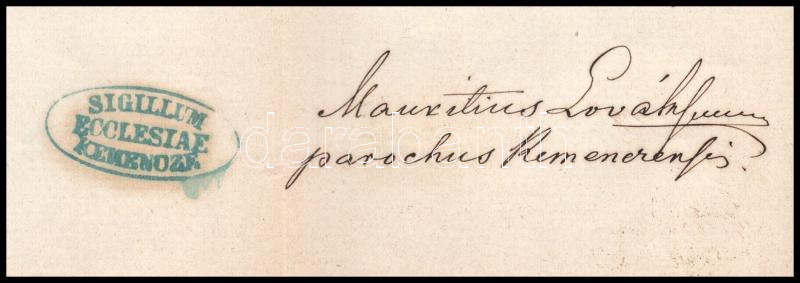 SIGILLUM
ECCLESIAE
KEMENCZE
Mauritius Lovák
parochus Kemenczensis.
darabanth